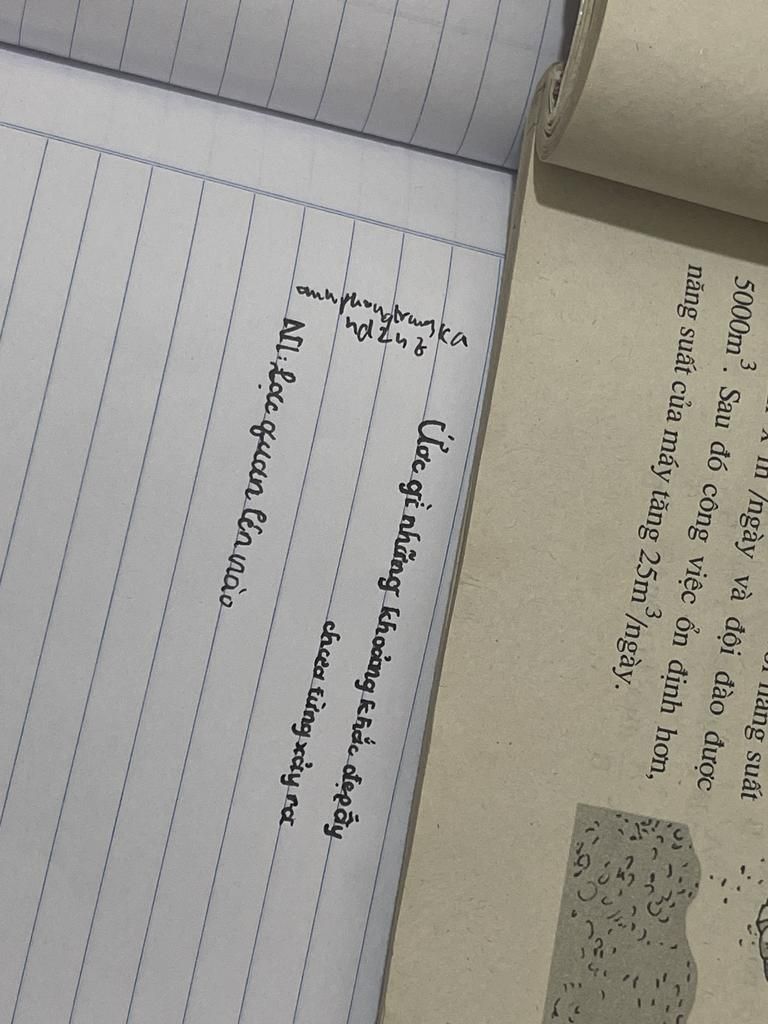 5000m³. Sau đó công việc ổn định hơn,
năng suất của máy tăng 25m³/ngày.
/ngày và đội đào được
năng suất
Ước gì những khoảng khắc đẹp ấy
chưa từng xảy ra
NL: Lạc quan lên nào